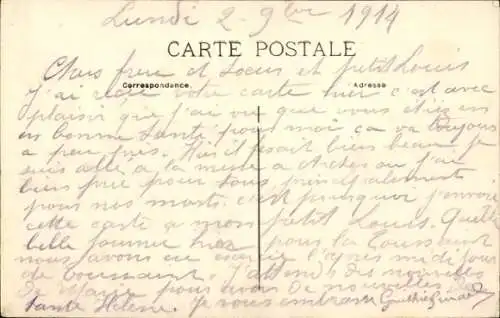 Lundi 2 9bre 1914
CARTE POSTALE
Correspondance Adresse
Chers frere et Soeur et petit Louis
J'ai reçu votre carte hier c'est avec
plaisir que j'ai vu que vous étiez en
en bonne Santé pour moi ça va toujours
a peu près. Hier il fesait bien beau je
suis allé à la messe a Arches ou j'ai
bien prié pour tous principalement
pour nos morts. c'est pourquoi j'envoie
cette carte a mon petit Louis. Quelle
belle journée hier pour la Toussaint
nous avons eu l'après midi jour
de Toussaint. J'attends des nouvelles
de Marie pour avoir de nouvelles de
tante Hélène. Je vous embrasse